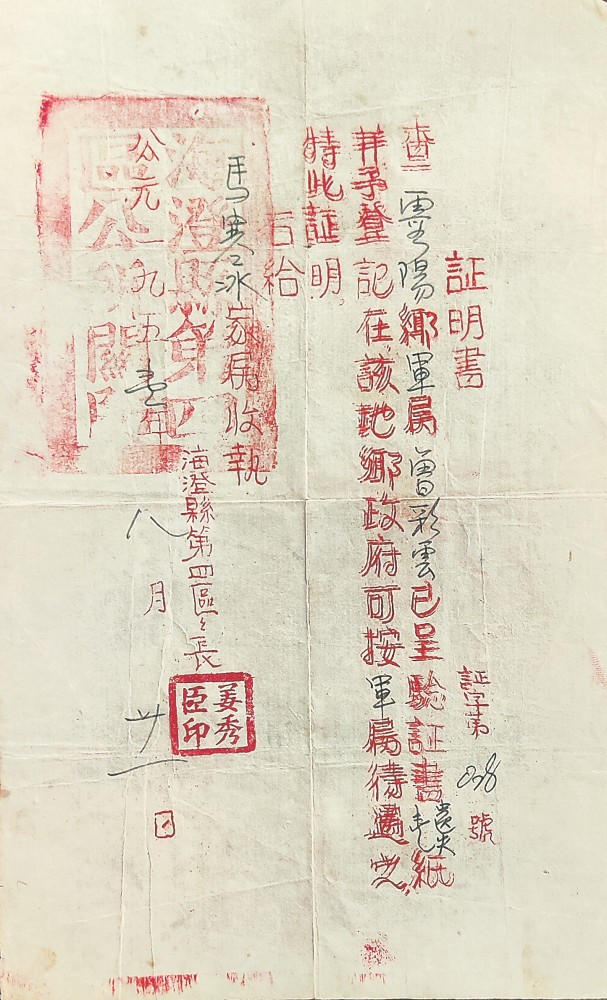 証明書
証字第 238 號
查 霞陽鄉軍属曾彩雲已呈驗証書壹紙
遺失
并予登記在該地鄉政府可按軍属待遇之,
特此証明,
右給
馬 冰家属收執
海澄縣第四區公所關防
海澄縣第四區々長
姜秀臣印
公元一九五壹年八月廿一日